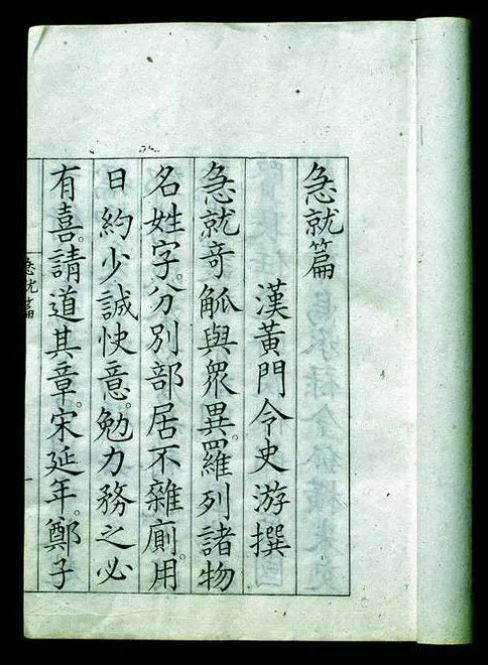 急就篇
漢黃門令史游撰
急就奇觚與衆異。羅列諸物
名姓字。分別部居不雜廁。用
日約少誠快意。勉力務之必
有喜。請道其章。宋延年。鄭子
急就篇